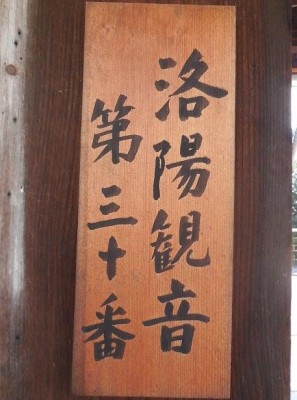 洛陽観音
第三十番